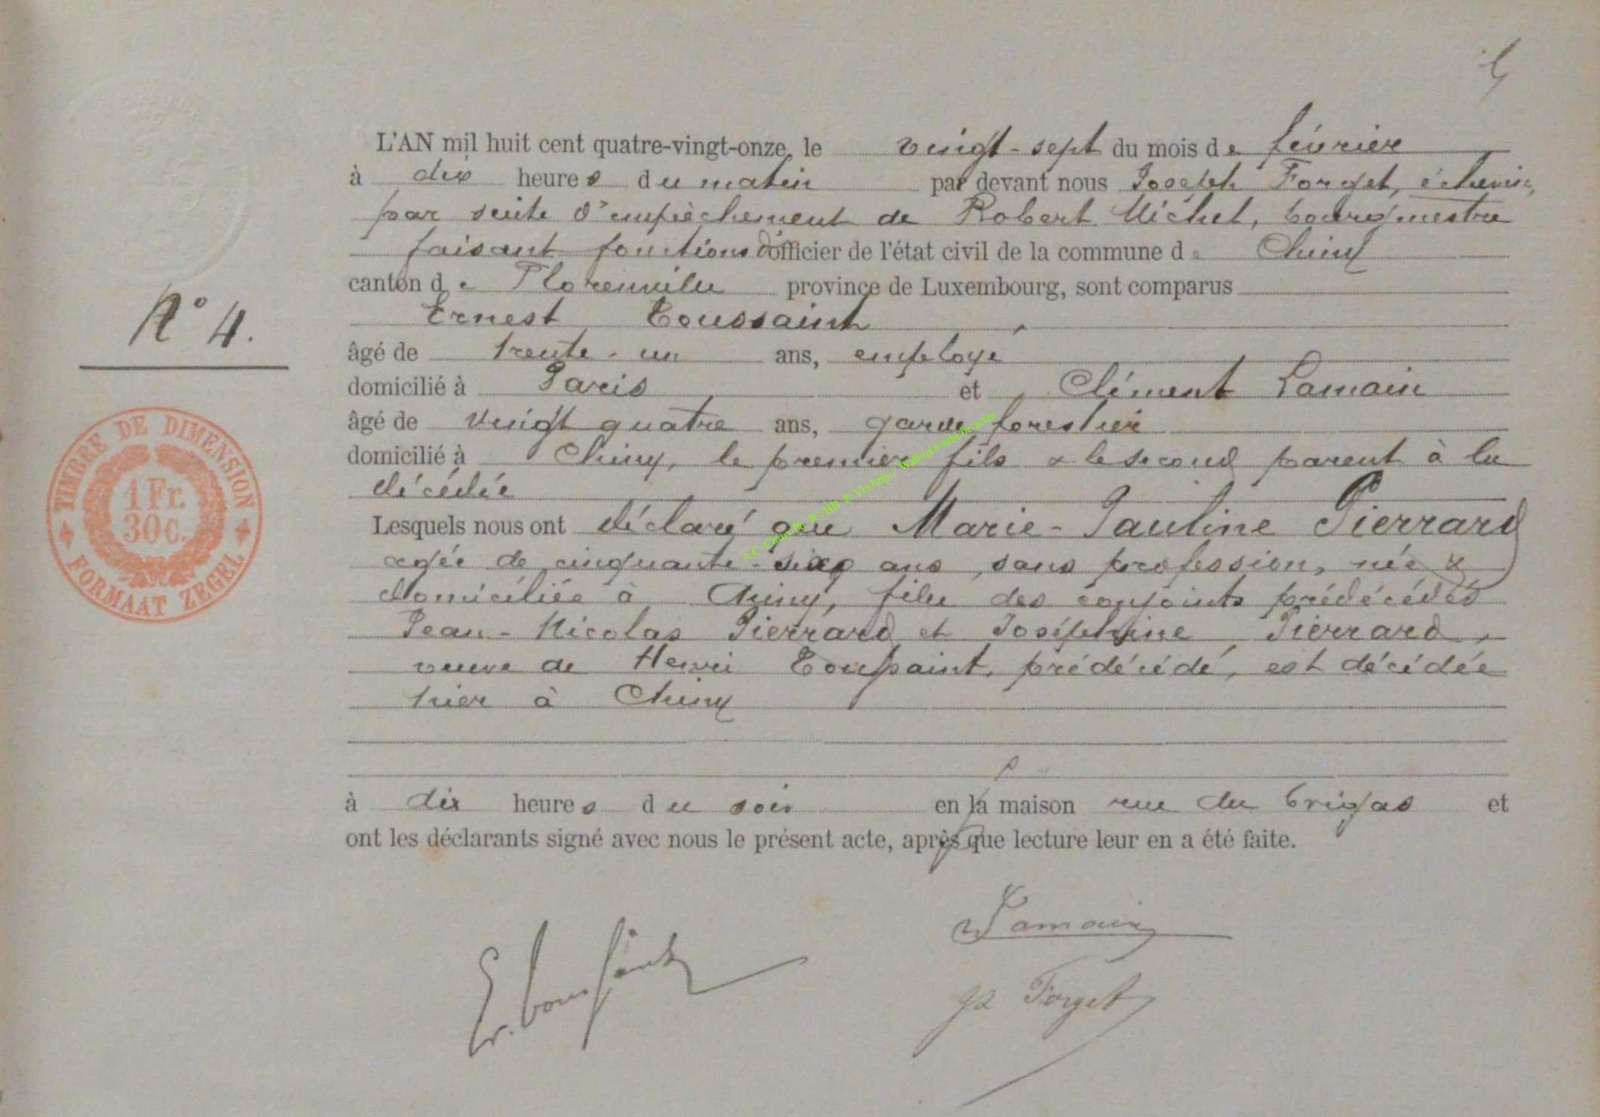 5
L'AN mil huit cent quatre-vingt-onze, le vingt-sept du mois de février
à dix heures du matin par devant nous Joseph Forget, échevin,
par suite d'empêchement de Robert Michel, bourgmestre
faisant fonctions d'officier de l'état civil de la commune de Chiny
canton de Florenville province de Luxembourg, sont comparus
Ernest Toussaint,
âgé de trente-un ans, employé
domicilié à Paris et Clément Lamain
âgé de vingt quatre ans, garde forestier
domicilié à Chiny, le premier fils & le second parent à la
décédée
Lesquels nous ont déclaré que Marie-Pauline Pierrard
agée de cinquante-six ans, sans profession, née &
domiciliée à Chiny, fille des conjoints prédécédés
Jean-Nicolas Pierrard et Joséphine Pierrard,
veuve de Henri Toussaint, prédécédé, est décédée
hier à Chiny
à dix heures du soir en la maison rue du et
ont les déclarants signé avec nous le présent acte, après que lecture leur en a été faite.
N° 4.
TIMBRE DE DIMENSION
1 Fr.
30 C.
FORMAAT ZEGEL
Lamain
Er. Toussaint
Forget